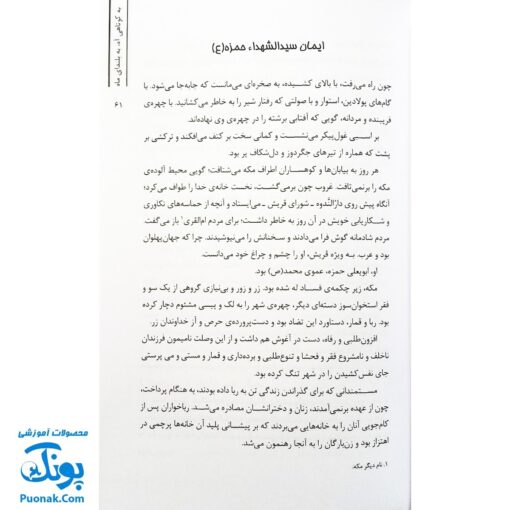 به کوتاهی آه، به بلندای ماه
۶۱
ایمان سیدالشهداء حمزه(ع)
چون راه می‌رفت، با بالای کشیده، به صخره‌ای می‌مانست که جابه‌جا می‌شود. با
گام‌های پولادین، استوار و با صولتی که رفتار شیر را به خاطر می‌کشانید. با چهره‌ی
فریبنده و مردانه، گویی که آفتابی برشته را در چهره‌ی وی نهاده‌اند.
بر اسبی غول‌پیکر می‌نشست و کمانی سخت بر کتف می‌افکند و ترکشی بر
پشت که هماره از تیرهای جگردوز و دل‌شکاف پر بود.
هر روز به بیابان‌ها و کوهساران اطراف مکه می‌شتافت؛ گویی محیط آلوده‌ی
مکه را برنمی‌تافت. غروب چون برمی‌گشت، نخست خانه‌ی خدا را طواف می‌کرد؛
آنگاه پیش روی دارُالنَّدوه ـ شورای قریش ـ می‌ایستاد و آنچه از حماسه‌های تکاوری
و شکاریابی خویش در آن روز به خاطر داشت؛ برای مردم ام‌القری۱ باز می‌گفت.
مردم شادمانه گوش فرا می‌دادند و سخنانش را می‌نیوشیدند. چرا که جهان‌پهلوان
بود و عرب. به ویژه قریش، او را چشم و چراغ خود می‌دانست.
او، ابویعلی حمزه، عموی محمد(ص) بود.
مکه، زیر چکمه‌ی فساد له شده بود. زر و زور و بی‌نیازی گروهی از یک سو و
فقر استخوان‌سوز دسته‌ای دیگر، چهره‌ی شهر را به لک و پیسی مشئوم دچار کرده
بود. ربا و قمار، دستاورد این تضاد بود و دست‌پرورده‌ی حرص و آز خداوندان زر.
افزون‌طلبی و رفاه، دست در آغوش هم داشت و از این وصلت نامیمون فرزندان
ناخلف و نامشروع فقر و فحشا و تنوع‌طلبی و برده‌داری و قمار و مستی و می پرستی
جای نفس‌کشیدن را در شهر تنگ کرده بود.
مستمندانی که برای گذراندن زندگی تن به ربا داده بودند، به هنگام پرداخت،
چون از عهده برنمی‌آمدند، زنان و دخترانشان مصادره می‌شد. رباخواران پس از
کام‌جویی آنان را به خانه‌هایی می‌بردند که بر پیشانی پلید آن خانه‌ها پرچمی در
اهتزاز بود و زن‌بارگان را به آنجا رهنمون می‌شد.
۱. نام دیگر مکه.
محصولات آموزشی
پونک
Puonak.Com